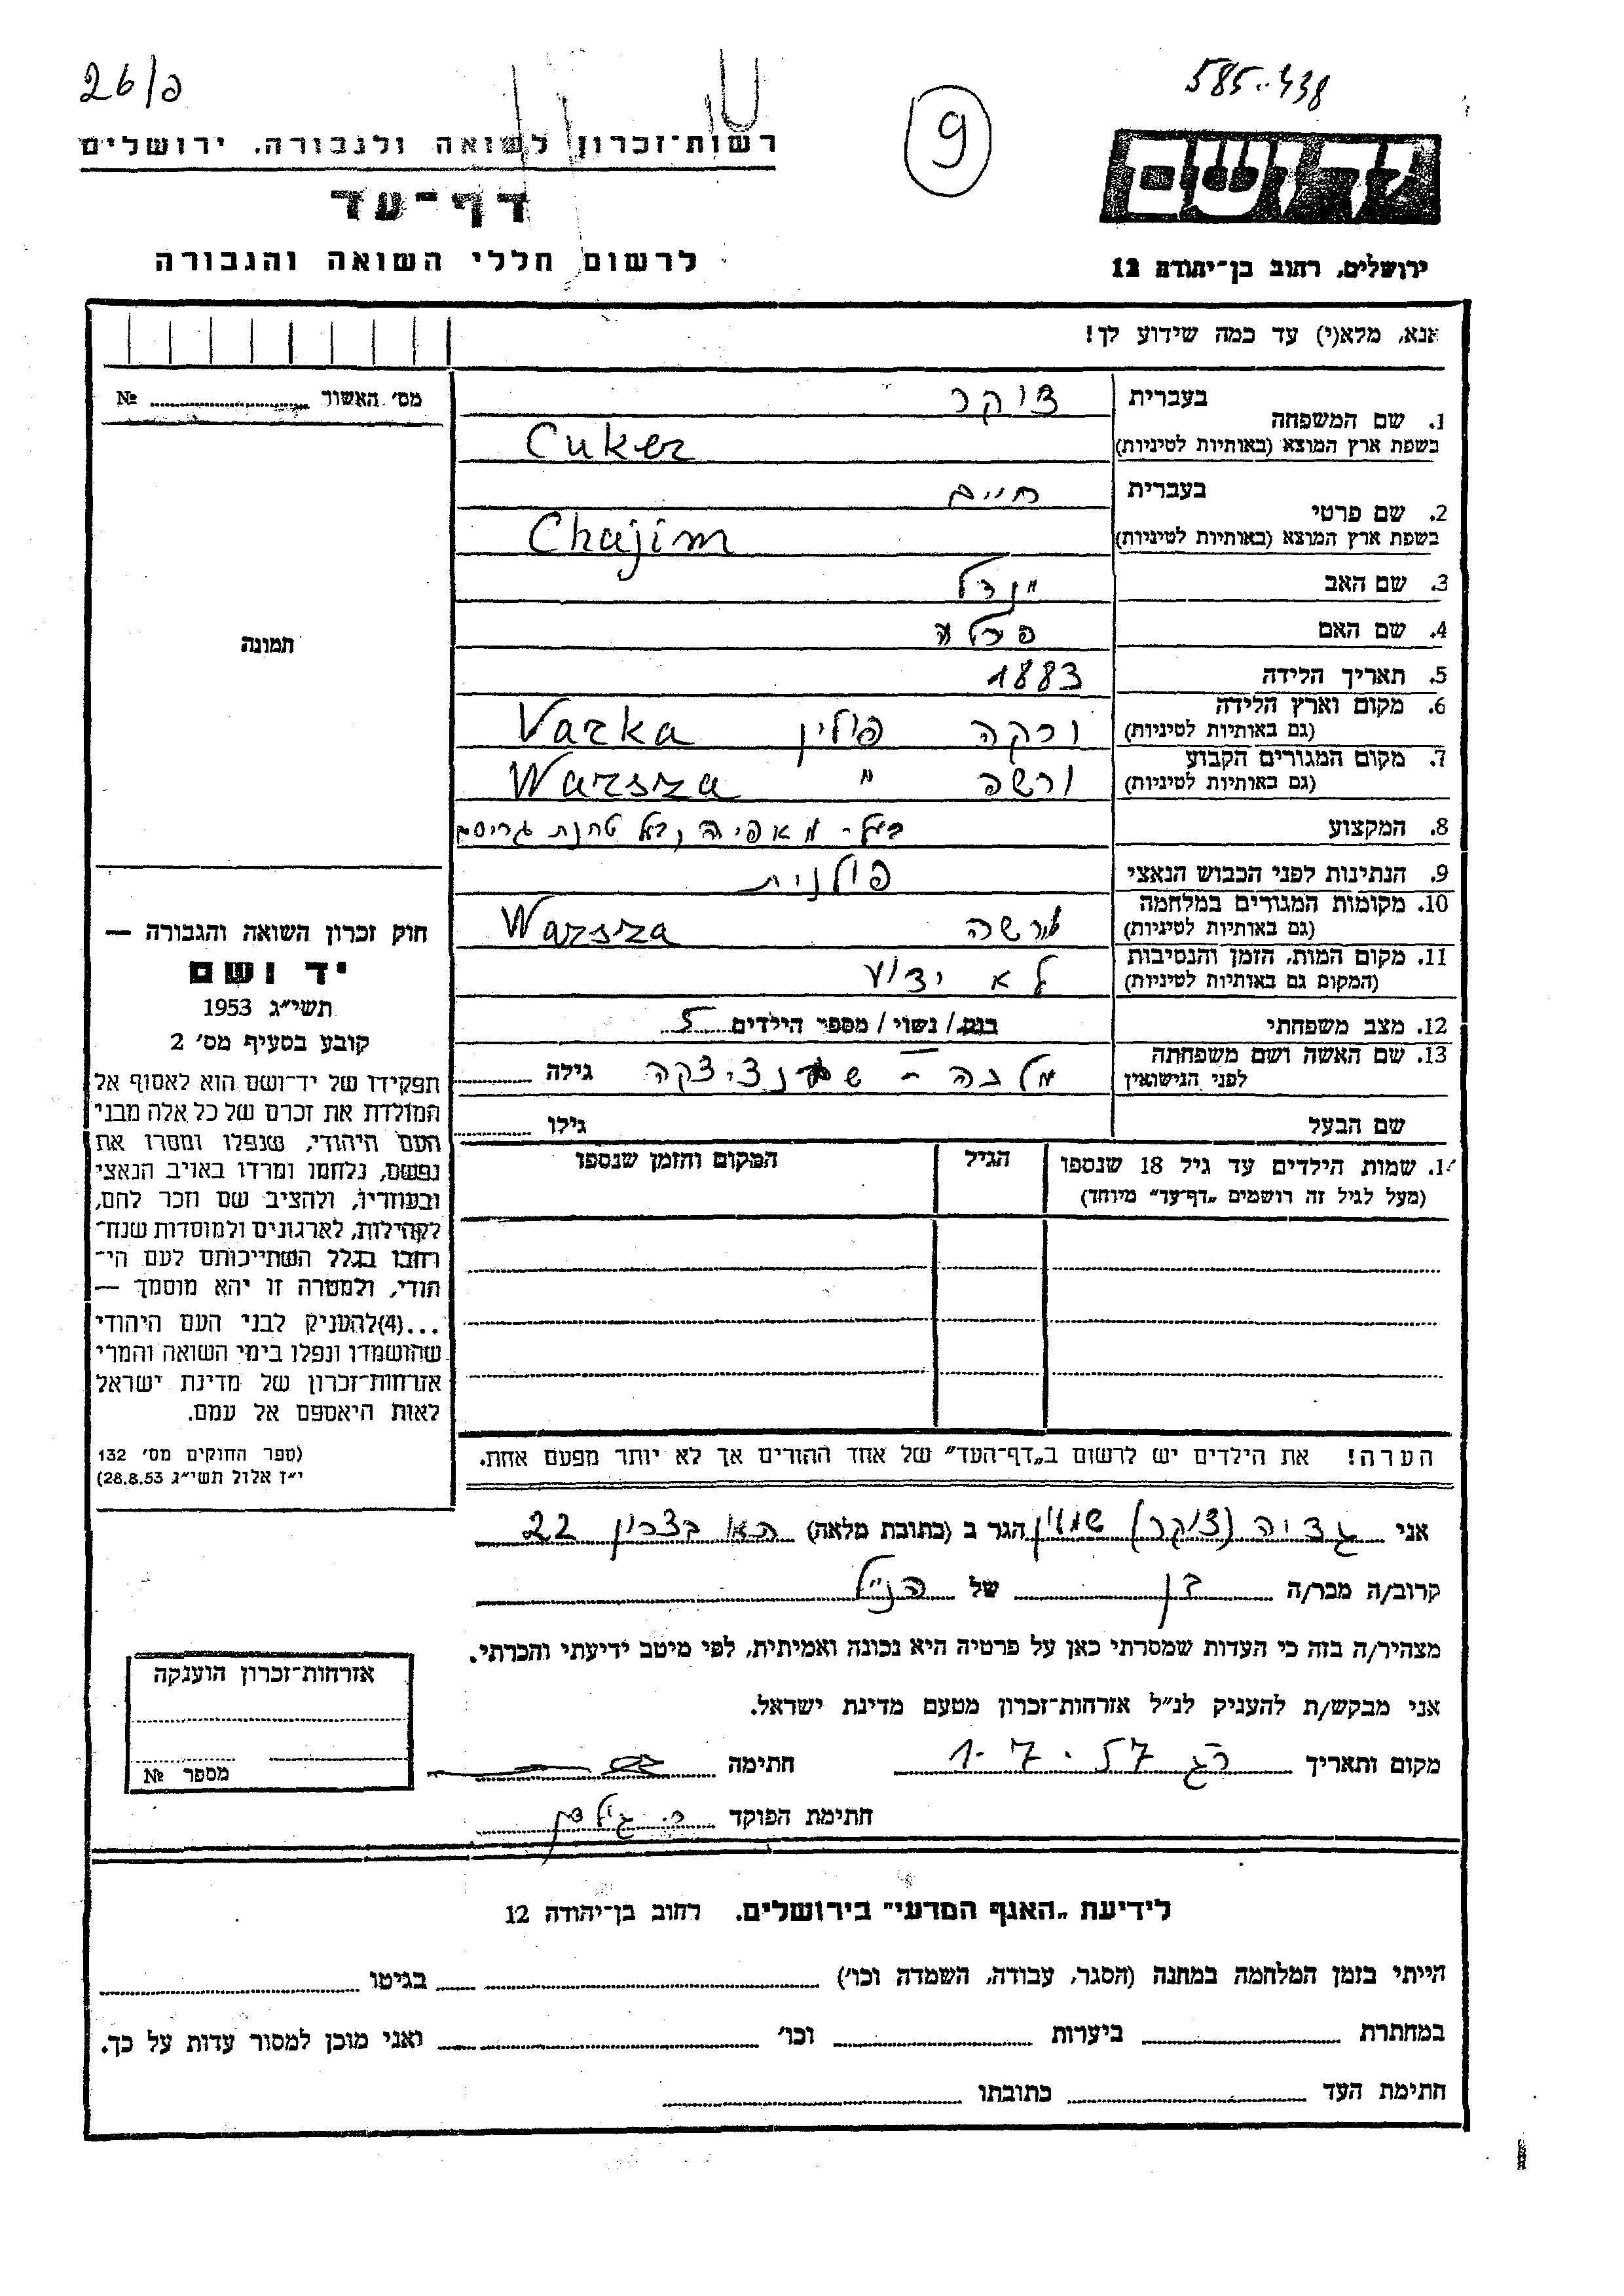 26/פ
585-438
9
רשות-זכרון לשואה ולגבורה, ירושלים
דף-עד
לרשום חללי השואה והגבורה
ירושלים, רחוב בן-יהודה 12
אנא, מלא(י) עד כמה שידוע לך!
מס׳ האשור № 
1. שם המשפחה בעברית צוקר
בשפת ארץ המוצא (באותיות לטיניות) Cuker
2. שם פרטי בעברית חיים
בשפת ארץ המוצא (באותיות לטיניות) Chajim
3. שם האב
4. שם האם פרלה
5. תאריך הלידה 1883
6. מקום וארץ הלידה (גם באותיות לטיניות) ורקה פולין Varka
7. מקום המגורים הקבוע (גם באותיות לטיניות) ורשה " Warsza
8. המקצוע בעל- מאפיה ובעל טחנת גריסים
9. הנתינות לפני הכבוש הנאצי פולנית
10. מקומות המגורים במלחמה (גם באותיות לטיניות) ורשה Warsza
11. מקום המות, הזמן והנסיבות (המקום גם באותיות לטיניות) לא ידוע
12. מצב משפחתי נשוי / מספר הילדים 5
13. שם האשה ושם משפחתה לפני הנישואין מלכה - גילה
שם הבעל גילו
שמות הילדים עד גיל 18 שנספו (מעל לגיל זה רושמים „דף-עד" מיוחד) הגיל המקום והזמן שנספו
תמונה
חוק זכרון השואה והגבורה —
יד ושם
תשי״ג 1953
קובע בסעיף מס׳ 2
תפקידו של יד-ושם הוא לאסוף אל
המולדת את זכרם של כל אלה מבני
העם היהודי, שנפלו ומסרו את
נפשם, נלחמו ומרדו באויב הנאצי
ובעוזריו, ולהציב שם וזכר להם,
לקהילות, לארגונים ולמוסדות שנח-
רבו בגלל השתייכותם לעם הי-
הודי, ולמטרה זו יהא מוסמך —
...(4)להעניק לבני העם היהודי
שהושמדו ונפלו בימי השואה והמרי
אזרחות-זכרון של מדינת ישראל
לאות היאספם אל עמם.
(ספר החוקים מס׳ 132
י״ז אלול תשי״ג 28.8.53)
הערה! את הילדים יש לרשום ב„דף-העד" של אחד ההורים אך לא יותר מפעם אחת.
אני (צוקר) שמעון הגר ב (כתובת מלאה) בצרון 22
קרוב/ה מבר/ה בן של הנ״ל
מצהיר/ה בזה כי העדות שמסרתי כאן על פרטיה היא נכונה ואמיתית, לפי מיטב ידיעתי והכרתי.
אני מבקש/ת להעניק לנ״ל אזרחות-זכרון מטעם מדינת ישראל.
מקום ותאריך רג 1.7.57 חתימה
חתימת הפוקד
אזרחות-זכרון הוענקה
מספר №
לידיעת „האגף המדעי" בירושלים. רחוב בן-יהודה 12
הייתי בזמן המלחמה במחנה (הסגר, עבודה, השמדה וכו׳) בגיטו
במחתרת ביערות וכו׳ ואני מוכן למסור עדות על כך.
חתימת העד כתובתו